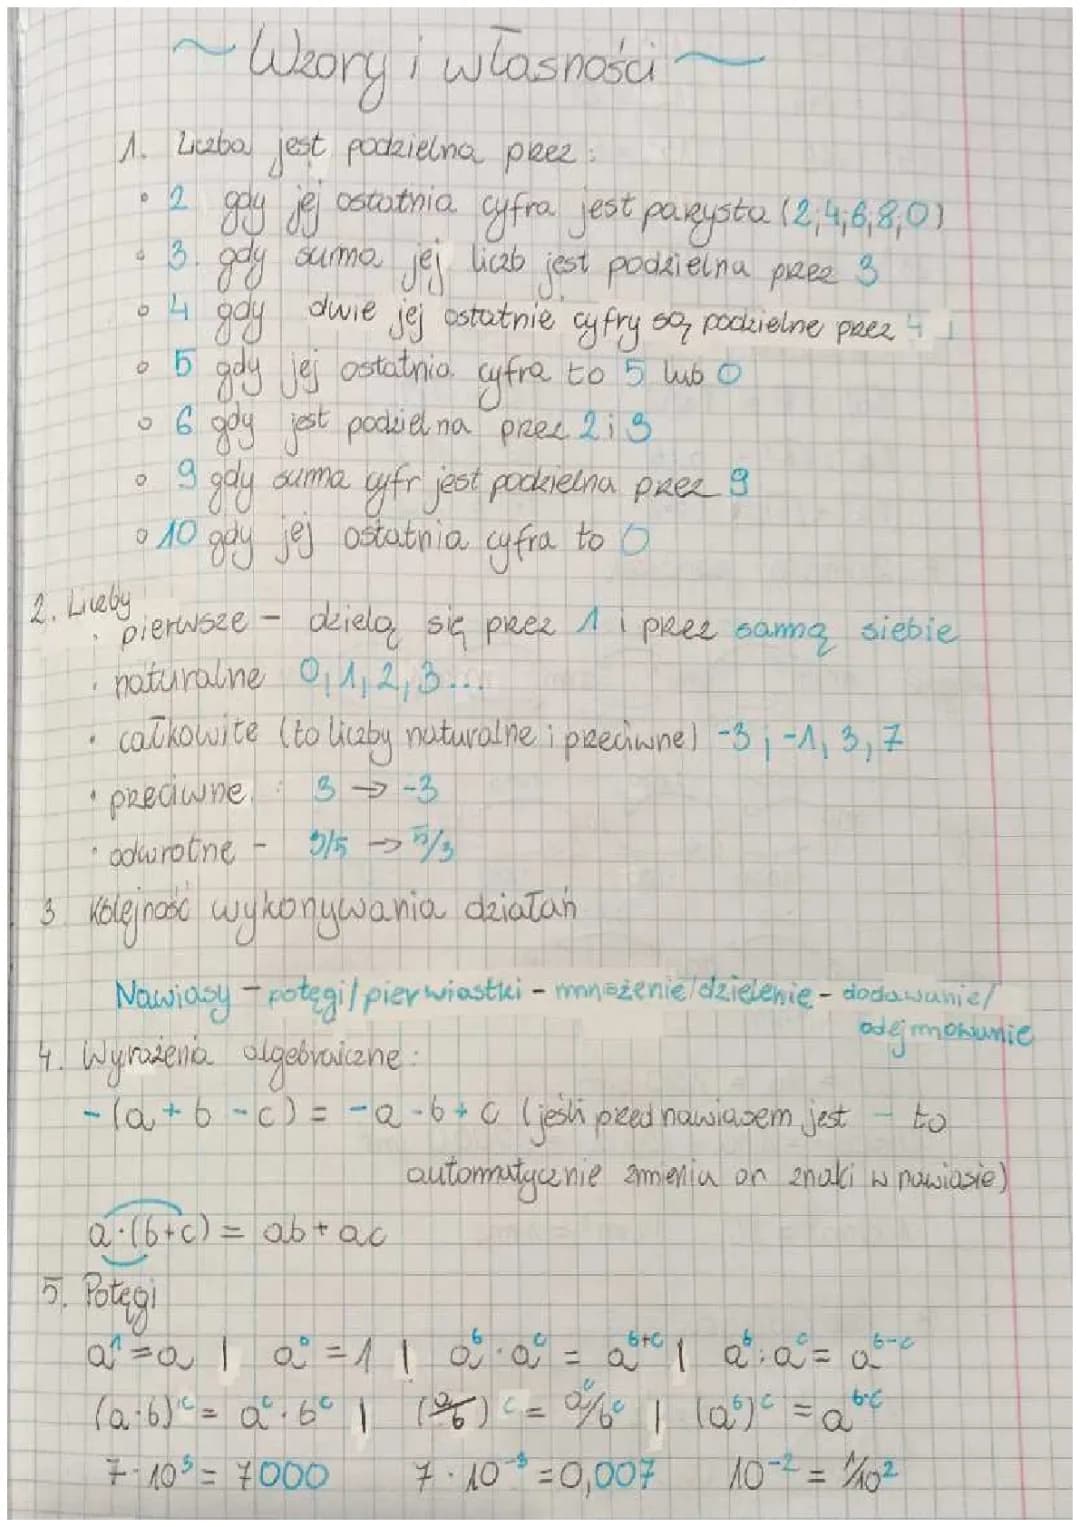 ~ Wzory i własności ~
1. Liczba jest podzielna przez:
• 2 gdy jej ostatnia cyfra jest parzysta (2,4,6,8,0)
• 3. gdy suma jej liczb jest podzielna przez 3
• 4 gdy dwie jej ostatnie cyfry są podzielne przez 4
• 5 gdy jej ostatnia cyfra to 5 lub 0
• 6 gdy jest podzielna przez 2 i 3
• 9 gdy suma cyfr jest podzielna przez 9
• 10 gdy jej ostatnia cyfra to 0
2. Liczby
• pierwsze - dzielą się przez 1 i przez samą siebie
• naturalne 0,1,2,3...
• całkowite (to liczby naturalne i przeciwne) -3; -1, 3, 7
• przeciwne : 3 → -3
• odwrotne - 3/5 → 5/3
3 Kolejność wykonywania działań
Nawiasy - potęgi/pierwiastki - mnożenie/dzielenie - dodawanie/
odejmowanie
4. Wyrażenia algebraiczne:
-(a+b-c) = -a-b+c (jeśli przed nawiasem jest - to
automatycznie zmienia on znaki w nawiasie)
a·(b+c) = ab+ac
5. Potęgi
a¹=a | a⁰=1 | aᵇ·aᶜ = aᵇ⁺ᶜ | aᵇ:aᶜ = aᵇ⁻ᶜ
(a·b)ᶜ = aᶜ·bᶜ | (a/b)ᶜ = aᶜ/bᶜ | (aᵇ)ᶜ = aᵇ·ᶜ
7·10³ = 7000 7·10⁻³ = 0,007 10⁻² = 1/10²